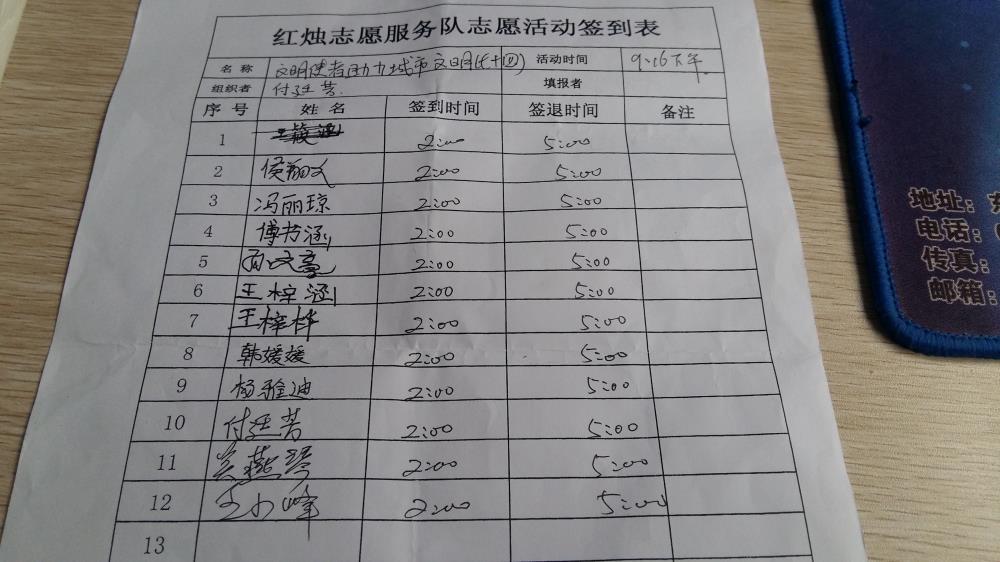 红烛志愿服务队志愿活动签到表
名称 文明使者助力城市文明(十四) 活动时间 9.16下午
组织者 付廷芳 填报者
序号 姓名 签到时间 签退时间 备注
1 2:00 5:00
2 侯翔文 2:00 5:00
3 冯丽琼 2:00 5:00
4 傅书涵 2:00 5:00
5 2:00 5:00
6 王梓涵 2:00 5:00
7 王梓桦 2:00 5:00
8 韩媛媛 2:00 5:00
9 杨雅迪 2:00 5:00
10 付廷芳 2:00 5:00
11 吴燕琴 2:00 5:00
12 王小峰 2:00 5:00
13
地址:
电话:
传真:
邮箱: